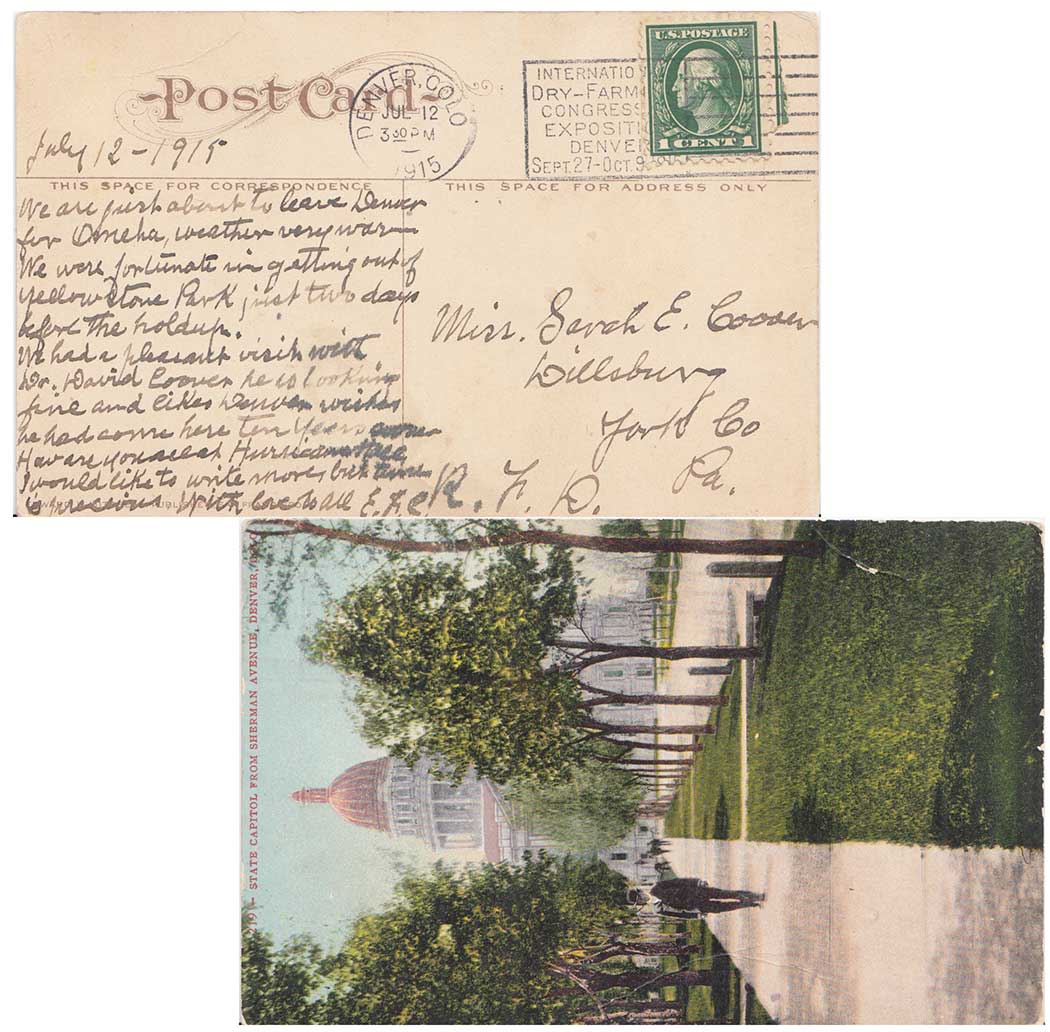 Post Card
DENVER, COLO
JUL 12
3 30 PM
1915
INTERNATIO
DRY-FARM
CONGRESS
EXPOSITI
DENVER
SEPT. 27-OCT. 9
U.S. POSTAGE
1 CENT 1
July 12 - 1915
THIS SPACE FOR CORRESPONDENCE
THIS SPACE FOR ADDRESS ONLY
We are just about to leave Denver
for Omeha, weather very warm
We were fortunate in getting out of
Yellowstone Park just two days
before the holdup.
We had a pleasant visit with
Dr. David Coover he is looking
fine and likes Denver wishes
he had come here ten years sooner
How are you all at
I would like to write more, but time
is precious. With love to all E.
Miss. Sarah E. Coover
Dillsburg
York Co
Pa.
R. F. D.
STATE CAPITOL FROM SHERMAN AVENUE, DENVER,